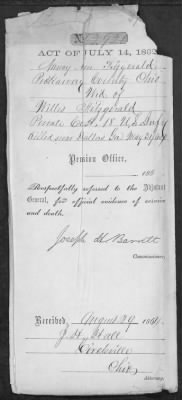 ACT OF JULY 14, 1862
Nancy Ann Fitzgerald
Pickaway County Ohio
Wid. of
Willis Fitzgerald
Private Co. 18 U.S.
Killed near Dallas Ga May
Pension Office,
186
Respectfully referred to the Adjutant
General, for official evidence of service
and death.
Joseph H. Barrett
Commissioner.
Received, August 29 1864.
Circleville
Ohio
Attorney.